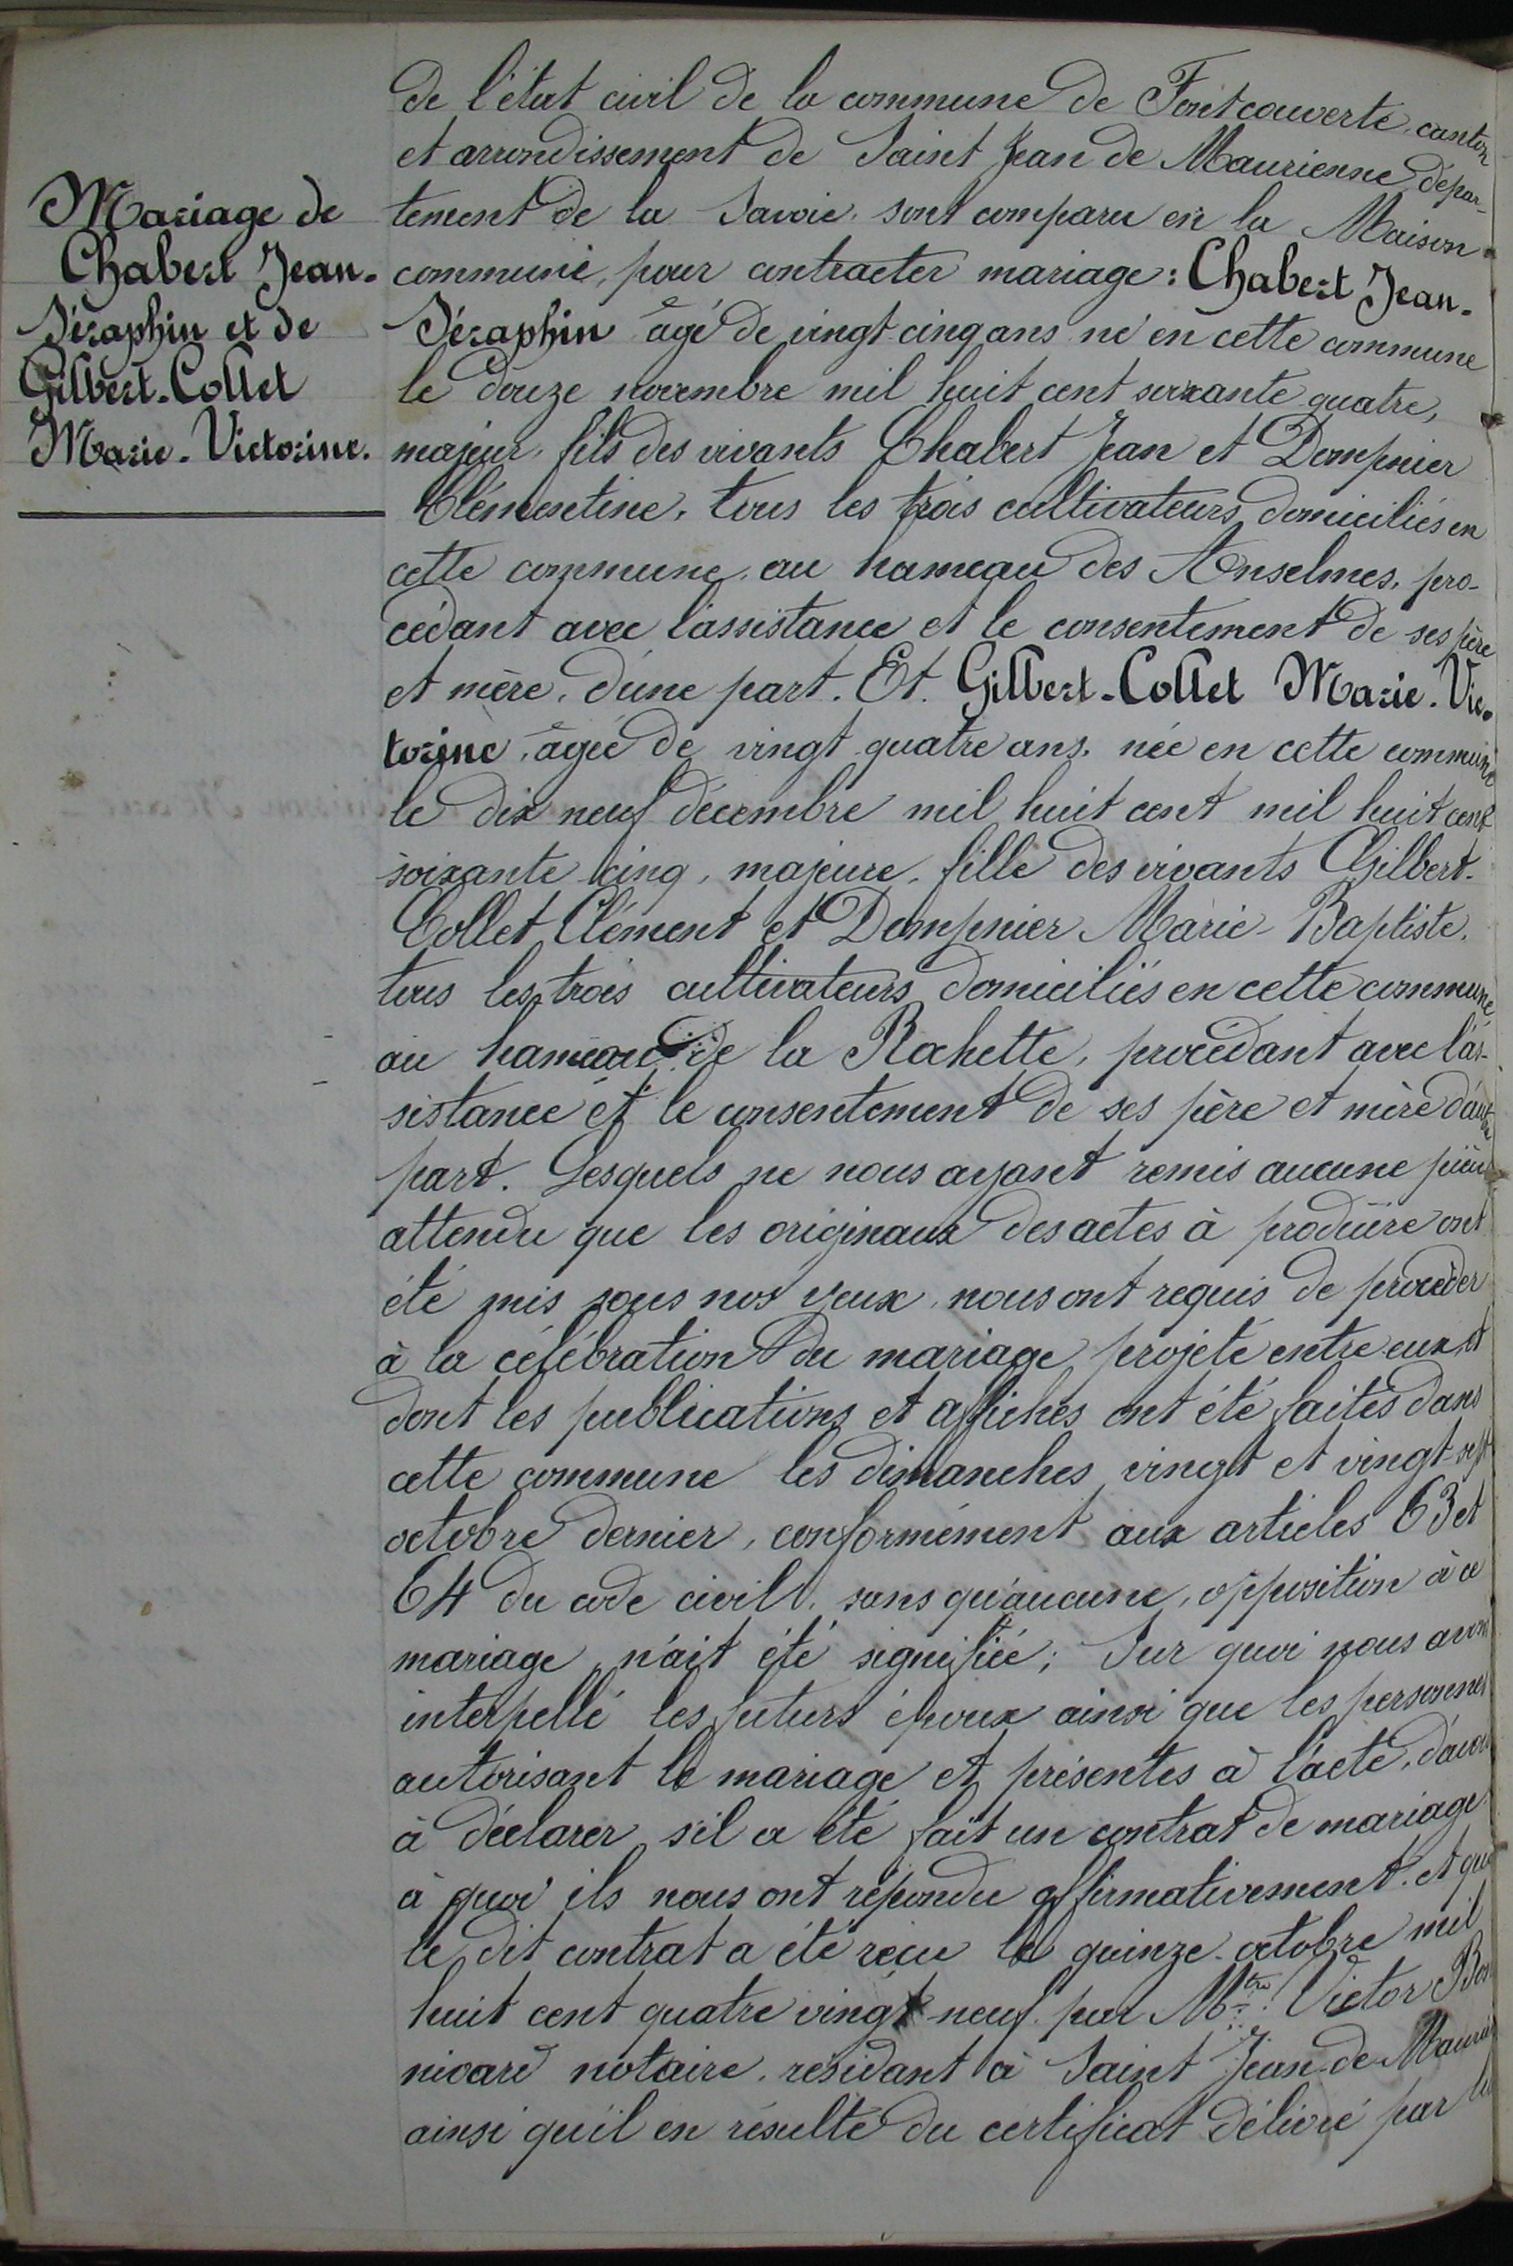 Mariage de
Chabert Jean-
Séraphin et de
Gilbert-Collet
Marie-Victorine.
de l'état civil de la commune de Fontcouverte, canton
et arrondissement de Saint Jean de Maurienne, dépar-
tement de la Savoie, sont comparu en la Maison
commune, pour contracter mariage : Chabert Jean-
Séraphin âgé de vingt-cinq ans né en cette commune
le douze novembre mil huit cent soixante quatre,
majeur, fils des vivants Chabert Jean et Dompnier
Clémentine, tous les trois cultivateurs domiciliés en
cette commune, au hameau des Anselmes, pro-
cédant avec l'assistance et le consentement de ses père
et mère, d'une part. Et Gilbert-Collet Marie-Vic-
torine, âgée de vingt-quatre ans, née en cette commune
le dix neuf décembre mil huit cent mil huit cent
soixante cinq, majeure, fille des vivants Gilbert-
Collet Clément et Dompnier Marie-Baptiste,
tous les trois cultivateurs domiciliés en cette commune
au hameau de la Rochette, procédant avec l'as-
sistance et le consentement de ses père et mère d'autre
part. Lesquels ne nous ayant remis aucune pièce
attendu que les originaux des actes à produire ont
été mis sous nos yeux, nous ont requis de procéder
à la célébration du mariage projeté entre eux et
dont les publications et affiches ont été faites dans
cette commune les dimanches vingt et vingt-sept
octobre dernier, conformément aux articles 63 et
64 du code civil, sans qu'aucune, opposition à ce
mariage n'ait été signifiée ; Sur quoi nous avons
interpellé les futurs époux ainsi que les personnes
autorisant le mariage et présentes à l'acte, d'avoir
à déclarer s'il a été fait un contrat de mariage
à quoi ils nous ont répondu affirmativement. et que
le dit contrat a été reçu le quinze octobre mil
huit cent quatre vingt neuf par Mtre Victor
nivard notaire, résidant à Saint Jean-de-
ainsi qu'il en résulte du certificat délivré par lui